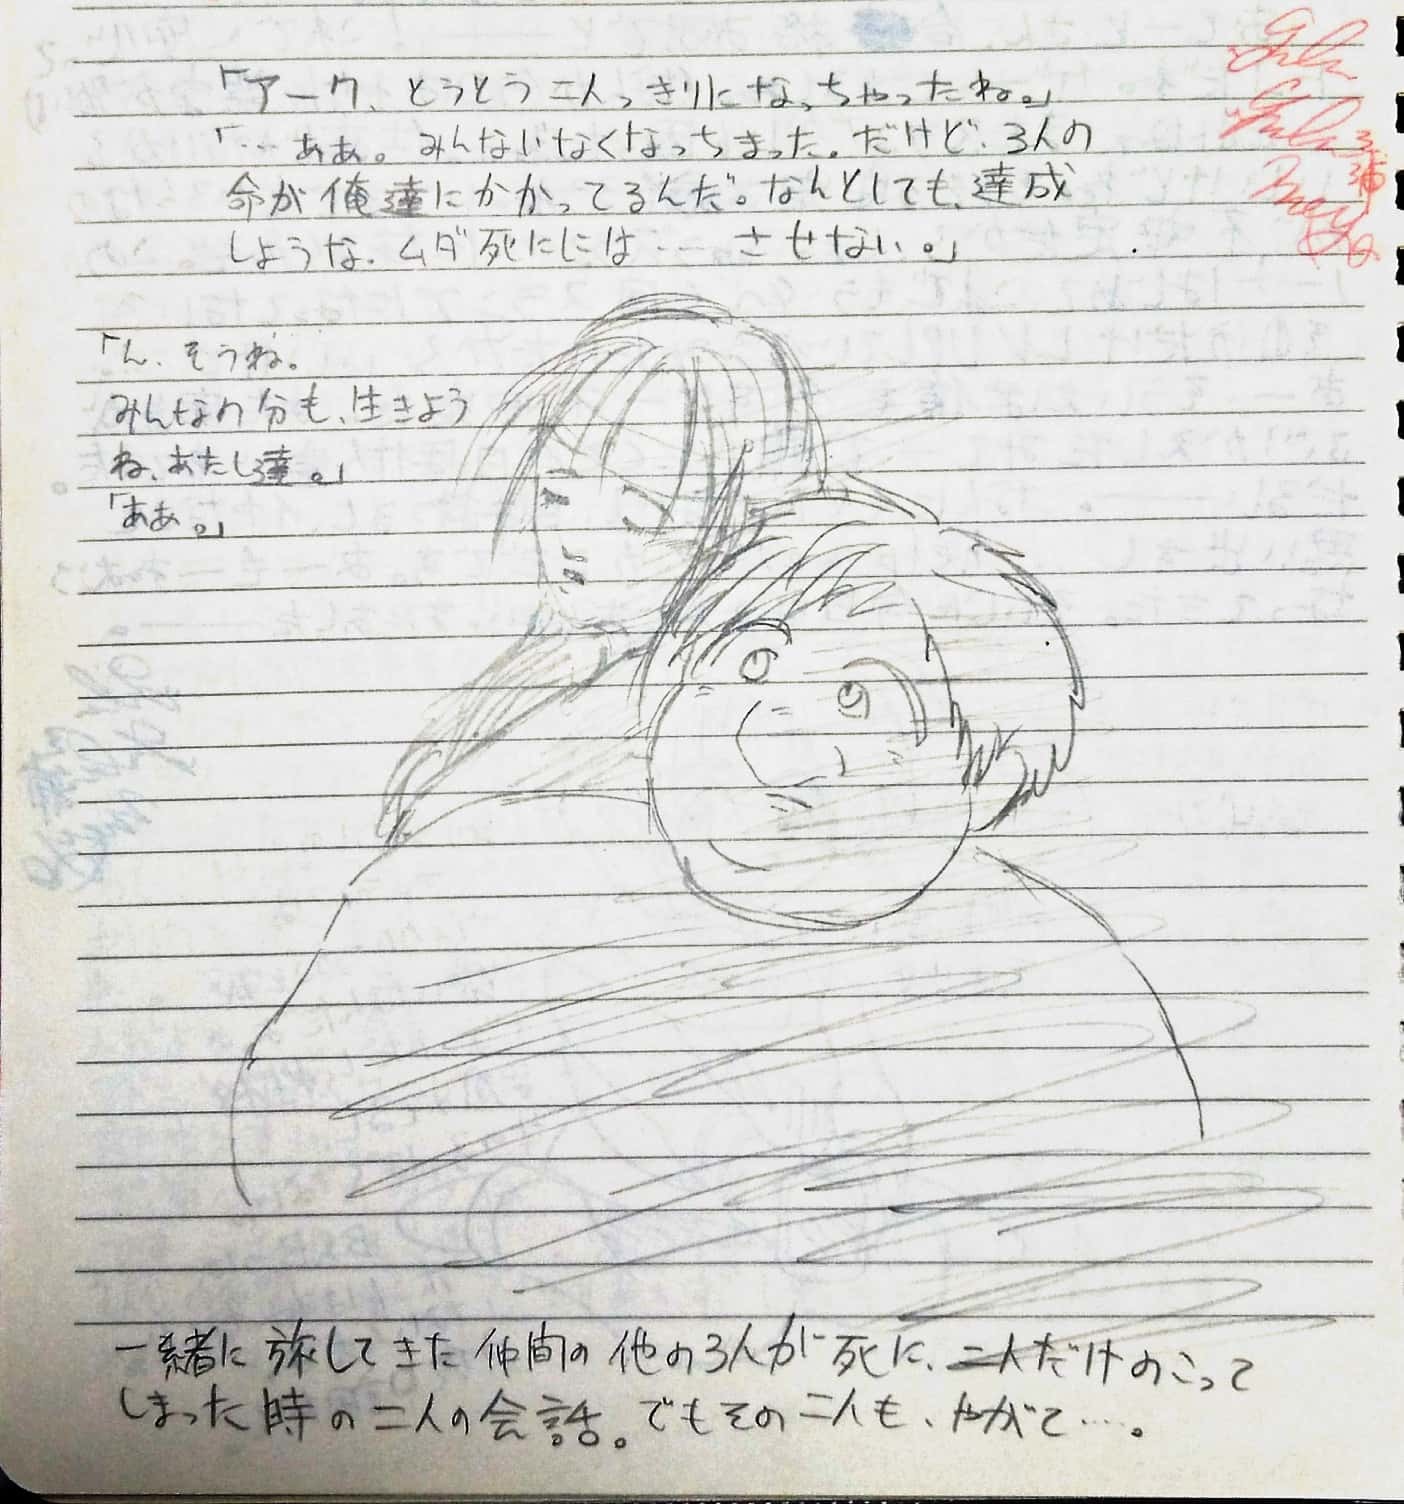 「アーク、とうとう二人っきりになっちゃったね。」
「… ああ。みんないなくなっちまった。だけど、3人の
命が俺達にかかってるんだ。なんとしても、達成
しような、ムダ死にには…… させない。」
「ん、そうね。
みんなの分も、生きよう
ね、あたし達。」
「ああ。」
一緒に旅してきた仲間の他の3人が死に、二人だけのこって
しまった時の二人の会話。でもその二人も、やがて…。